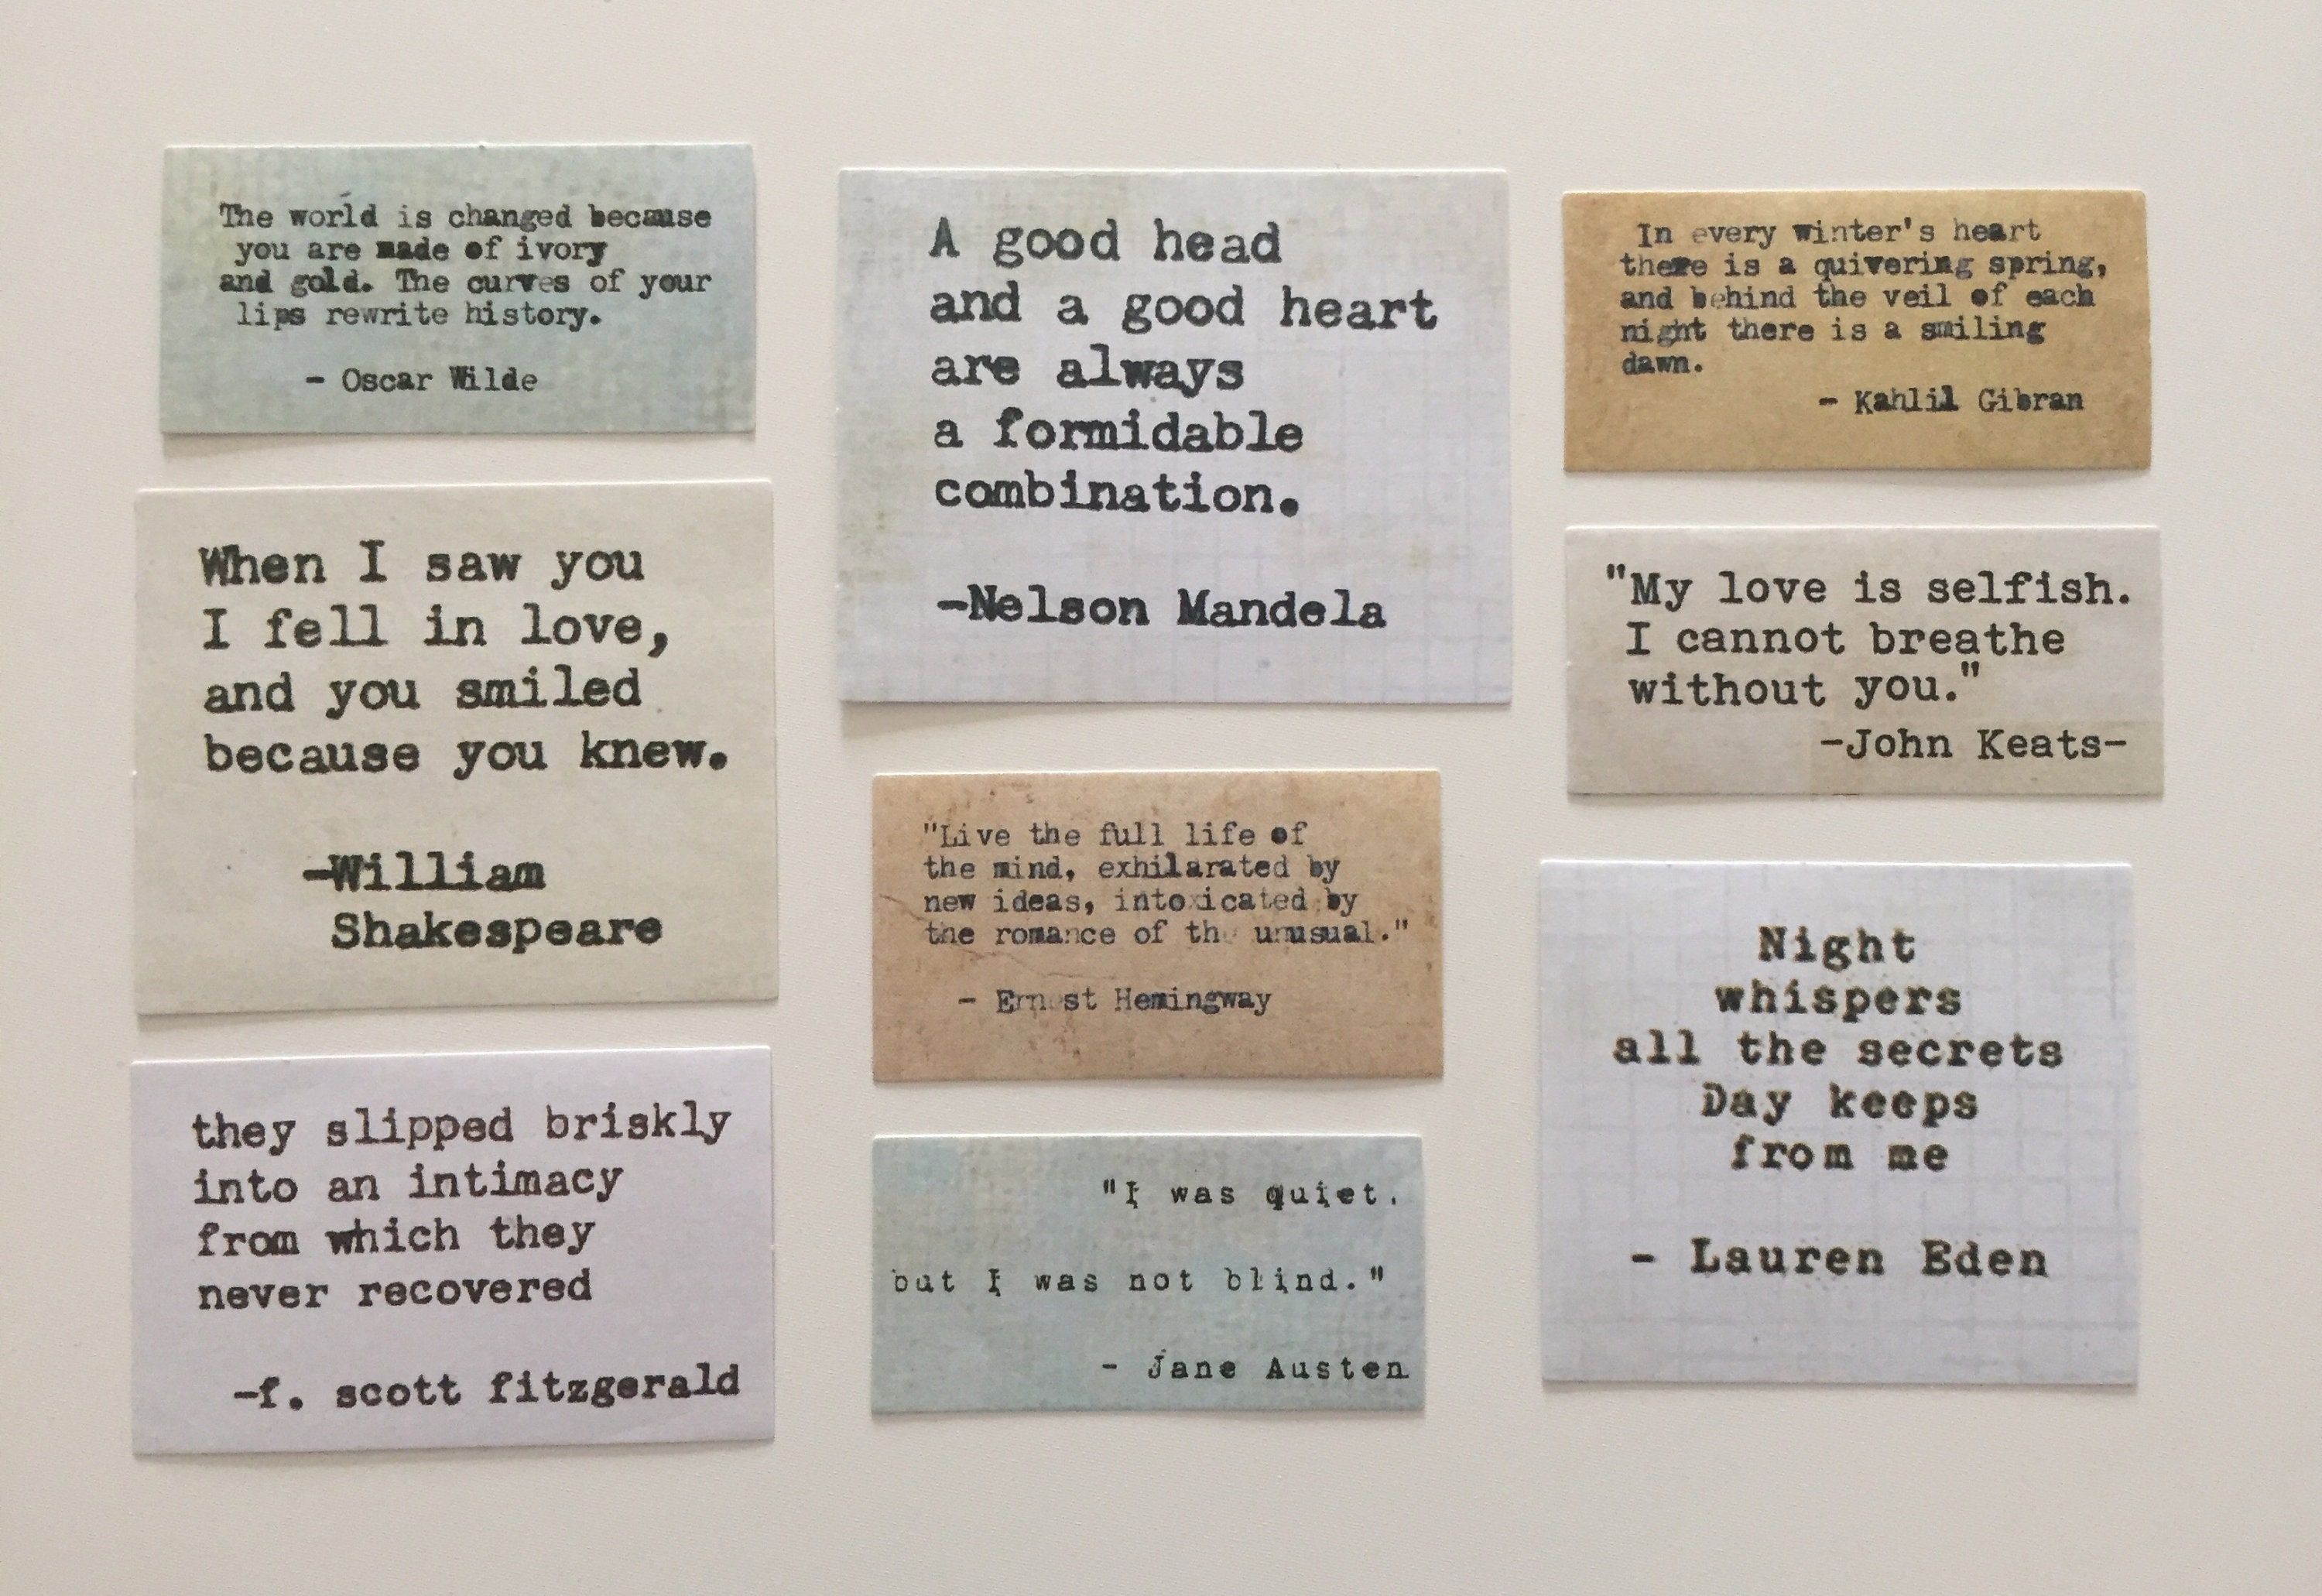 The world is changed because
you are made of ivory
and gold. The curves of your
lips rewrite history.
- Oscar Wilde
When I saw you
I fell in love,
and you smiled
because you knew.
-William
Shakespeare
they slipped briskly
into an intimacy
from which they
never recovered
-f. scott fitzgerald
A good head
and a good heart
are always
a formidable
combination.
-Nelson Mandela
"Live the full life of
the mind, exhilarated by
new ideas, intoxicated by
the romance of the unusual."
- Ernest Hemingway
"I was quiet,
but I was not blind."
- Jane Austen
In every winter's heart
there is a quivering spring,
and behind the veil of each
night there is a smiling
dawn.
- Kahlil Gibran
"My love is selfish.
I cannot breathe
without you."
-John Keats-
Night
whispers
all the secrets
Day keeps
from me
- Lauren Eden